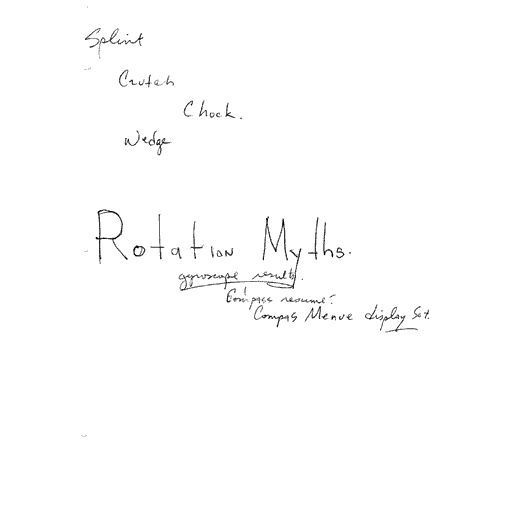 Splint
Crutch
Chock.
Wedge
Rotation Myths.
gyroscope results.
Compass resume:
Compas Menue display Set.